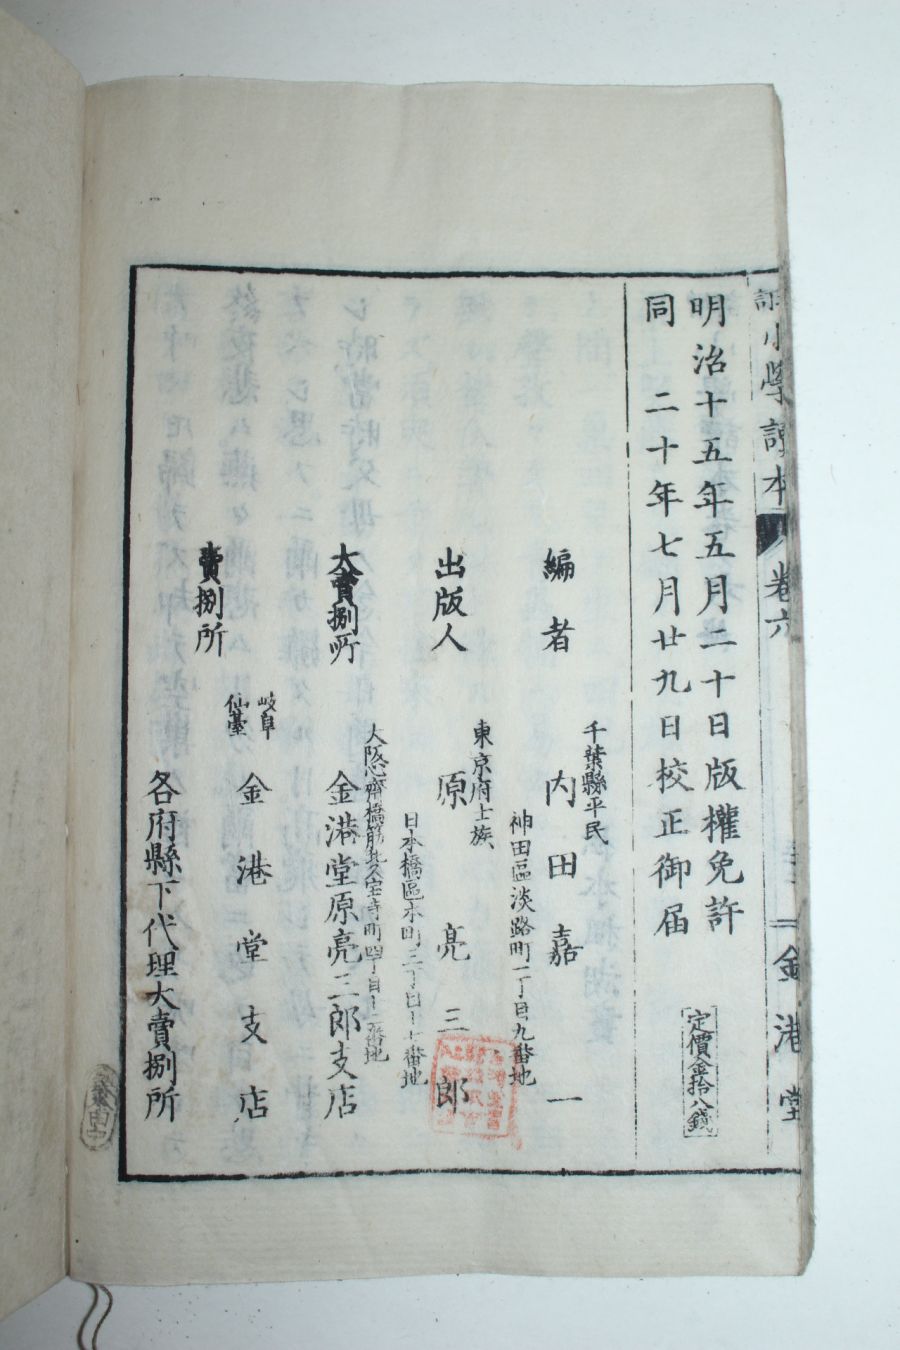 小學讀本 卷六 金港堂
明治十五年五月二十日版權免許
同 二十年七月廿九日校正御届
定價金拾八錢
千葉縣平民
編者 內田嘉一
神田區淡路町二丁目九番地
東京府士族
出版人 原亮三郎
日本橋區本町三丁目十七番地
大阪心齋橋筋北久宝寺町四丁目十二番地
大賣捌所 金港堂原亮三郎支店
岐阜
仙臺
金港堂支店
賣捌所
各府縣下代理大賣捌所